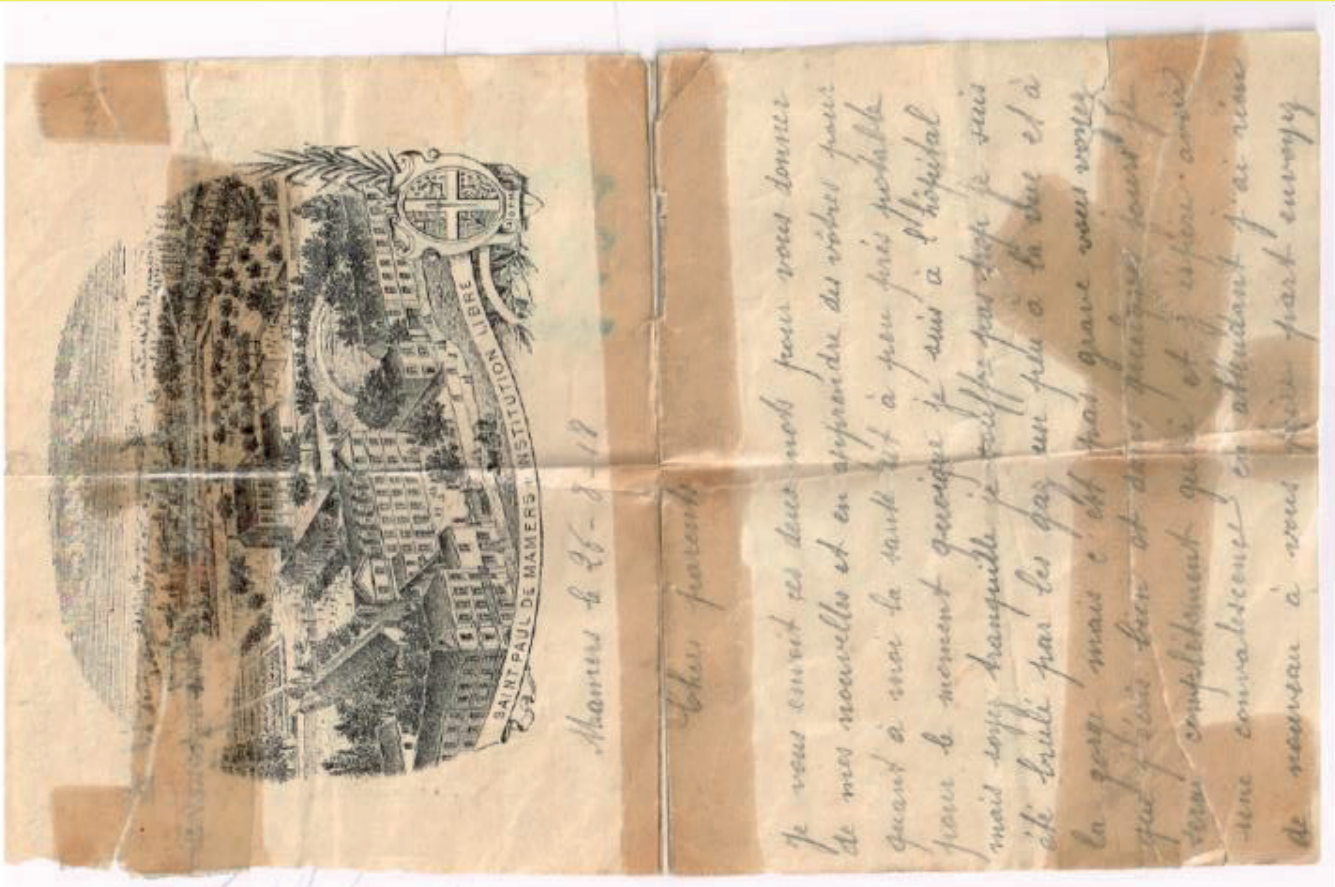 SAINT PAUL DE MAMERS - INSTITUTION LIBRE
Mamers le 26-8-18
Cher parents
Je vous envoit ces deux mots pour vous donner
de mes nouvelles et en apprendre des vôtres pour
quant à moi la santé est à peu près potable
pour le moment quoique je suis à l'hôpital
mais soyez tranquille je souffre pas trop je suis
été brulé par les gaz un peu à la vue et à
la gorge mais c'est pas grave vous voyez
que j'écris bien et dans quelques jours je
serai complètement guéri et j'espère avoir
une convalescence en attendant j'ai rien
de nouveau à vous part envoyez